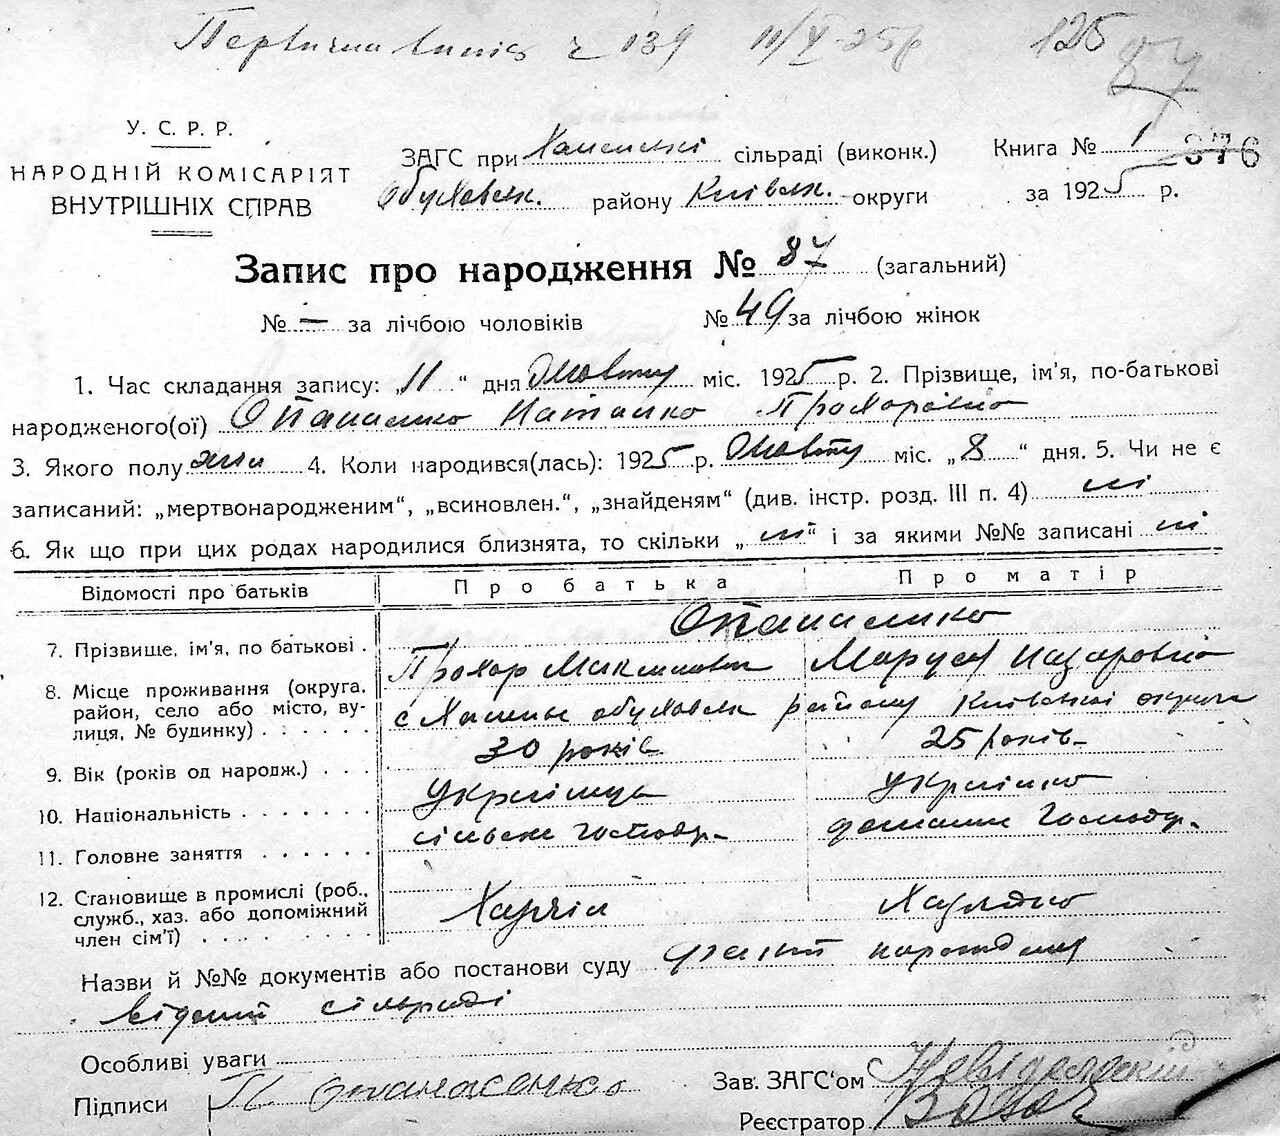 Первична випис ч 139 11/V-25р 125
87
У. С. Р. Р.
НАРОДНІЙ КОМІСАРІЯТ
ВНУТРІШНІХ СПРАВ
ЗАГС при сільраді (виконк.)
Обухівськ. району Київськ. округи
Книга № 1 376
за 1925 р.
Запис про народження № 87 (загальний)
№ — за лічбою чоловіків № 49 за лічбою жінок
1. Час складання запису: „11“ дня Жовтня міс. 1925 р. 2. Прізвище, ім'я, по-батькові
народженого(ої) Опанасенко Наталка Прохоровна
3. Якого полу жін 4. Коли народився(лась): 1925 р. Жовтня міс. „8“ дня. 5. Чи не є
записаний: „мертвонародженим“, „всиновлен.“, „знайденям“ (див. інстр. розд. III п. 4) ні
6. Як що при цих родах народилися близнята, то скільки „ні“ і за якими №№ записані ні
Відомості про батьків Про батька Про матір
Опанасенко
7. Прізвище, ім'я, по батькові .
Прохор Маруся Назаровна
8. Місце проживання (округа, район, село або місто, ву-
лиця, № будинку) . . . . . .
с. Обухівськ району Київської округи
9. Вік (років од народж.) . . . 30 років 25 років
10. Національність . . . . . . . Українець Українка
11. Головне заняття . . . . . . сільськ господр. домашн господр.
12. Становище в промислі (роб.,
служб., хаз. або допоміжний
член сім'ї) . . . . . . . .
Назви й №№ документів або постанови суду факт народження
відомий сільраді
Особливі уваги
Підписи П Опанасенко
Зав. ЗАГС'ом
Реєстратор